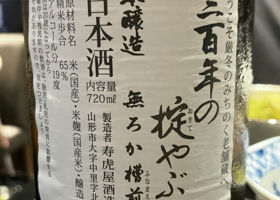 うこそ厳冬のみちのく老舗蔵へ
三百年の
掟やぶ
おきて
本醸造 無ろか槽前
ふなまえ
日本酒
内容量
720ml
製造者 寿虎屋酒造
山形市大字中里字北
原材料名 米(国産)・米麹(国産)・醸造
精米歩合 65%
アルコール分 19度